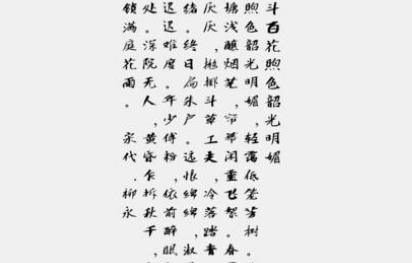 斗百花煦色韶光明媚
煦色韶光明媚,轻霭低笼芳树。
塘浅蘸烟芜,帘幕闲垂飞絮。春
厌厌,抛掷斗草工夫,冷落踏青
绪。终日扃朱户。远恨绵绵,淑
迟迟难度。年少傅粉,依前醉眠
处。深院无人,黄昏乍拆秋千,
锁满庭花雨。宋代.柳永